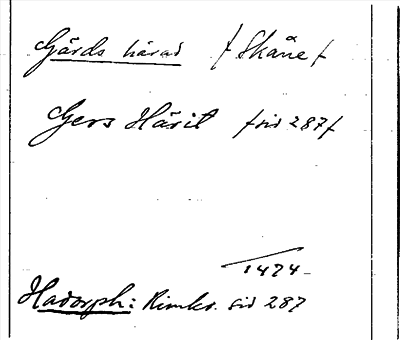 Gärds härad / Skåne /
Gers Härit / sid 287 /
1474
Hadorph: Rimkr. sid 287